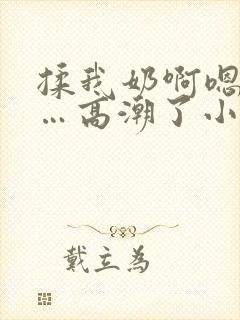 揉我奶啊嗯
…高潮了小
戴立为